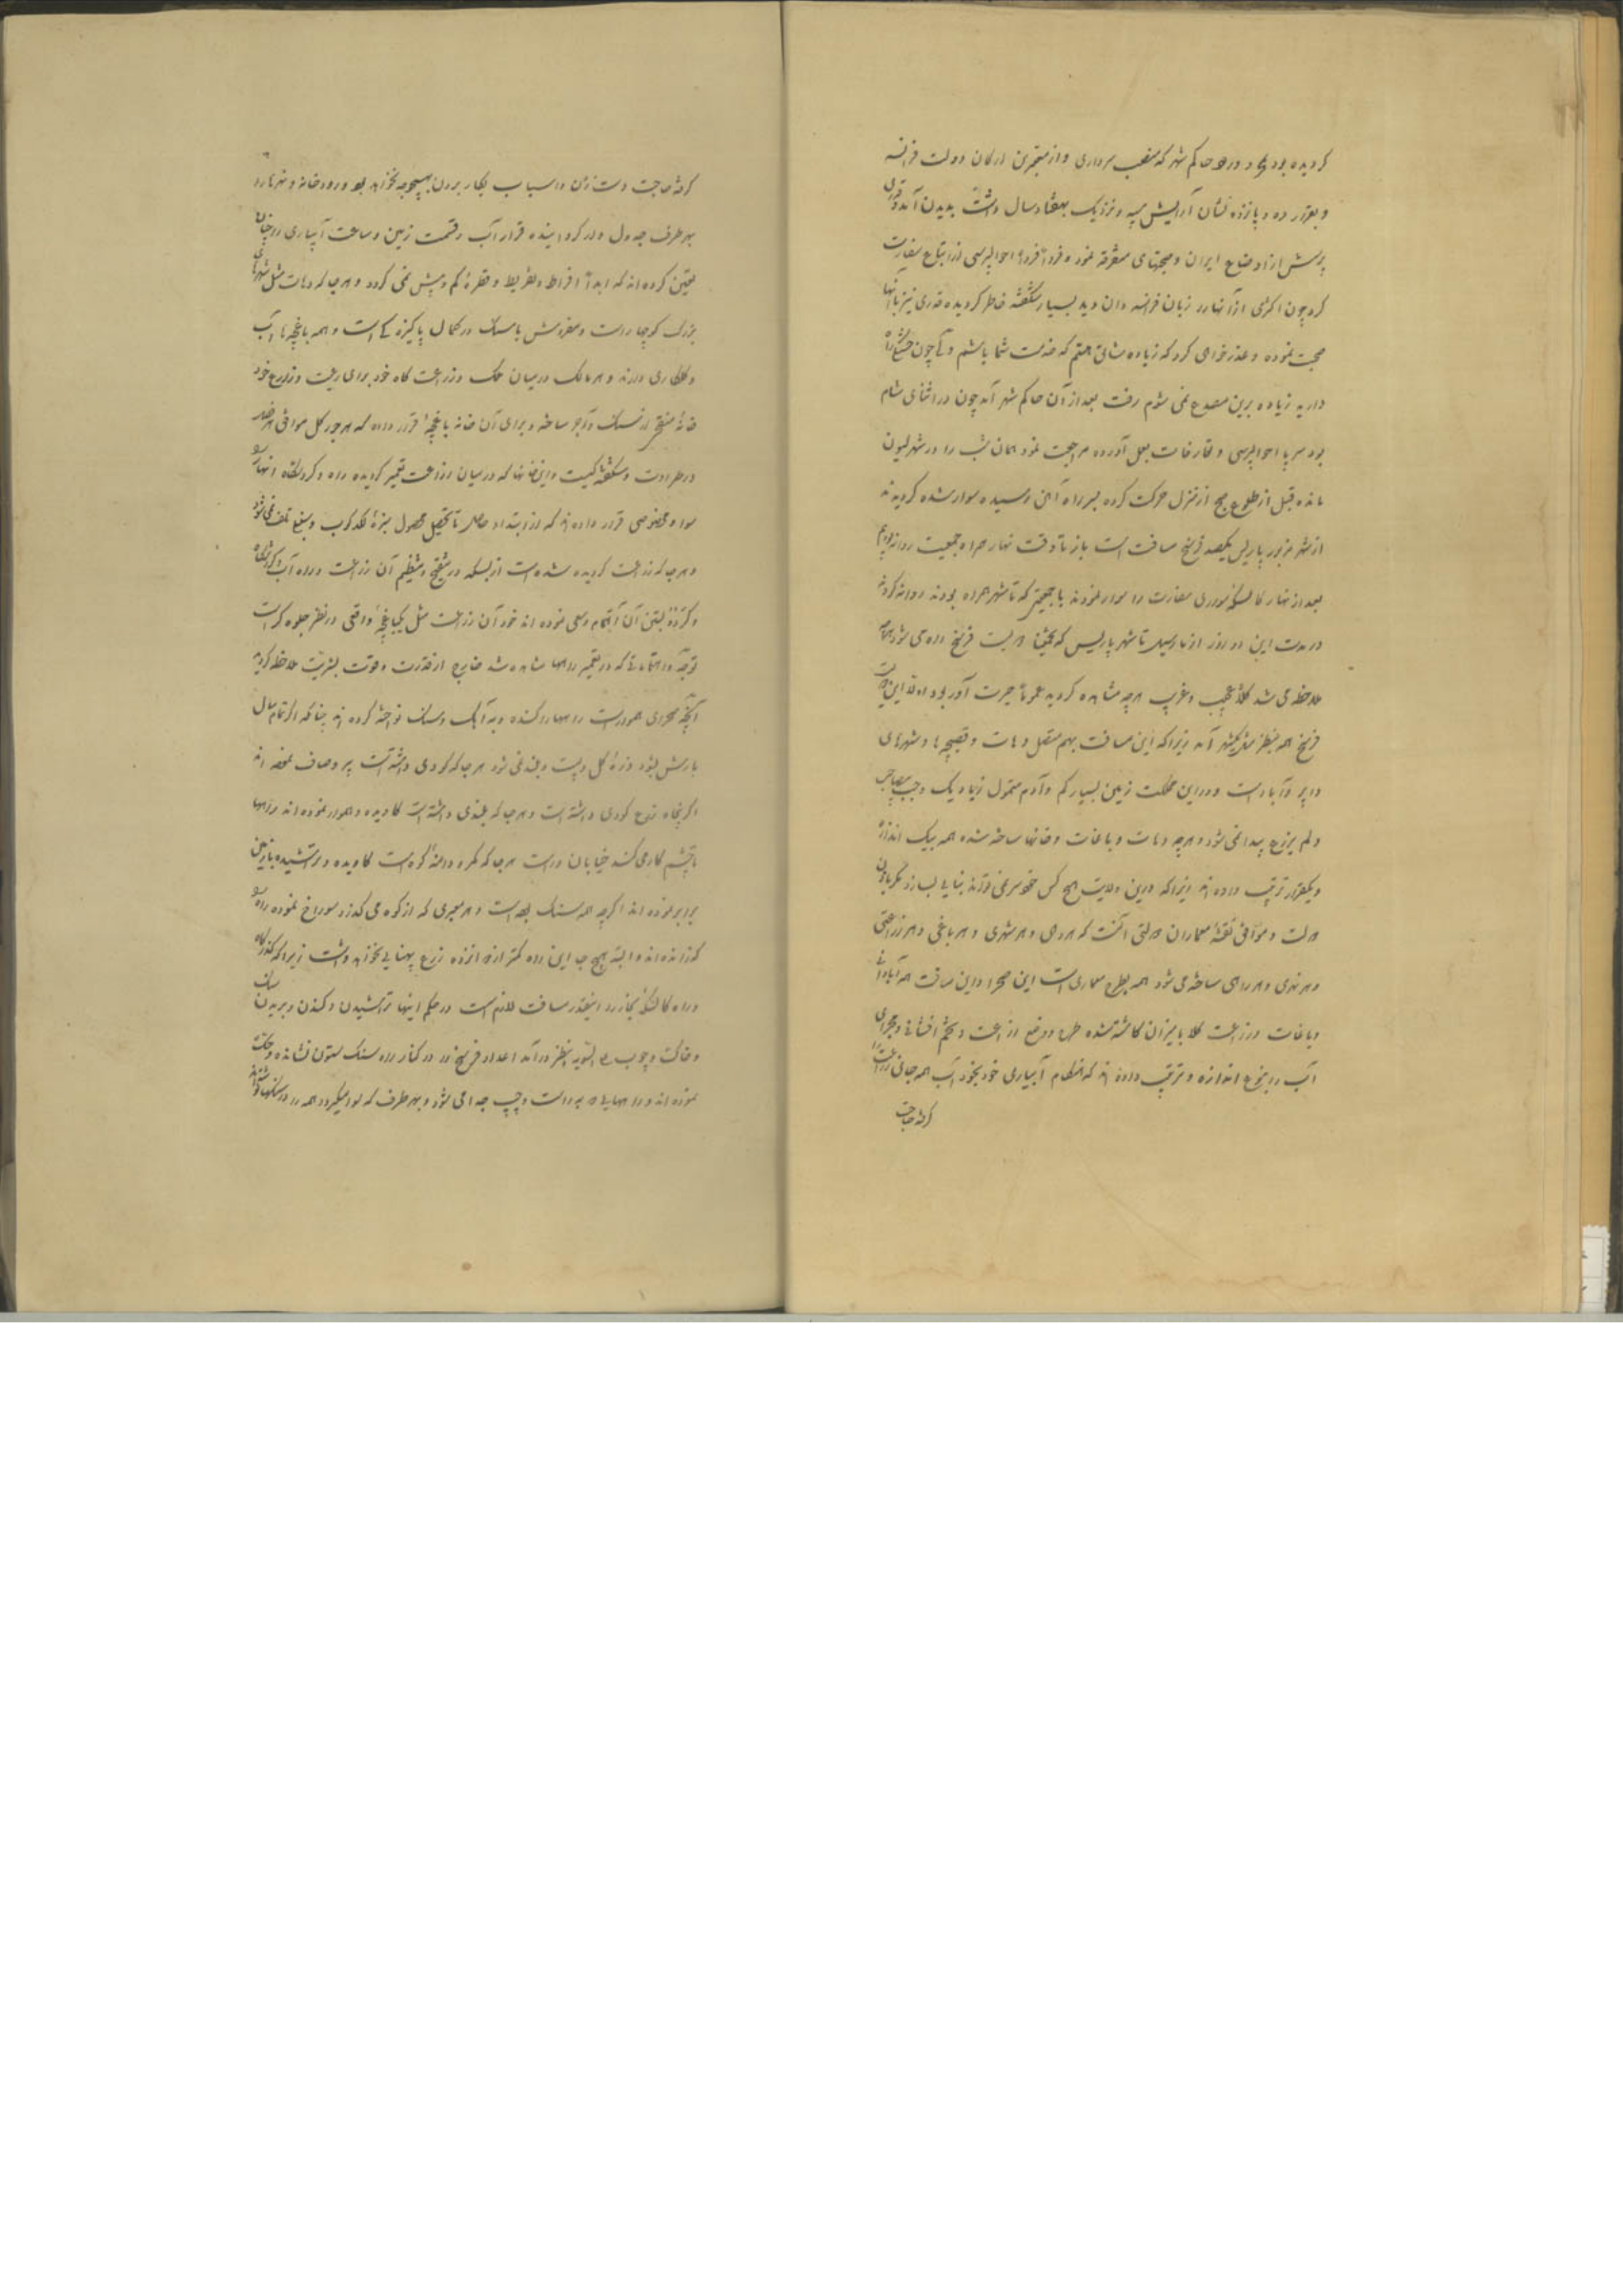 گردیده بود و در ورود حاکم شهر که منصب سرداری و از معتبرین ارکان دولت فرانسه
و بقدر ده و پانزده نشان آرایش سینه و نزدیک بهفتاد سال داشت بدیدن آمده قدری
پرسش از اوضاع ایران و صحبتهای متفرقه نمود و فرداً فرداً احوالپرسی از اتباع سفارت
کرد چون اکثری از آنها را زبان فرانسه دان دید بسیار شکفته خاطر گردیده قدری نیز با آنها
صحبت نموده و عذرخواهی کرد که زیاده مشتاق هستم که خدمت شما باشم ولی چون خستگی راه
دارید زیاده برین مصدع نمی شوم رفت بعد از آن حاکم شهر آمد چون در اثنای شام
بود سرپا احوالپرسی و تعارفات بعمل آورده مراجعت نمود همان شب را در شهر لیون
مانده قبل از طلوع صبح از منزل حرکت کرده بسر راه آهن رسیده سوار شده گردیدند
از شهر مزبور پاریس یکصد فرسخ مسافت است باز تا وقت نهار همراه جمعیت روانه بودیم
بعد از نهار کالسکه سواری سفارت را سوار نمودند با جمعیتی که تا شهر همراه بودند روانه کردند
در مدت این دو روز از مارسیل تا شهر پاریس که تخمیناً دویست فرسخ راه می شود
ملاحظه می شد کلاً عجیب و غریب هرچه مشاهده گردید عموماً حیرت آور بود اولاً این دویست
فرسخ همه بنظر مثل یکشهر آمد زیرا که این مسافت بهم متصل دهات و قصبچه ها و شهرهای
دایر و آباد است و در این مملکت زمین بسیار کم و آدم متمول زیاد یک وجب بیصاحب
و لم یزرع پیدا نمی شود و هرچه دهات و باغات و خانها ساخته شده همه بیک اندازه
و یکقرار ترتیب داده اند زیرا که درین ولایت هیچ کس خودسر نمی تواند بنایی بسازد مگر باذن
دولت و موافق نقشهٔ معماران دولتی اینست که هر دهی و هر شهری و هر باغی و هر زراعتی
و هر نهری و هر راهی ساخته می شود همه بطرح معماری است این صحرا و این مسافت همه آبادانی
و باغات و زراعت کلاً بامیزان کاشته شده طرح و وضع زراعت و تخم افشانی و مجرای
آب را بنوع اندازه و ترتیب داده اند که هنگام آبیاری خود بخود آب همه جای زراعت را
گرفته حاجت
گرفته حاجت دست زدن و اسباب بکار بردن بهیچوجه نخواهد بود و رودخانه و نهرها را
بهر طرف جدول دار گردانیده قرار آب و قسمت زمین و ساعت آبیاری را چنان
معین کرده اند که ابداً افراط و تفریط و قطرهٔ کم و بیش نمی گردد و هر جا که دهات مثل شهرهای
بزرگ کوچها راست و مفروش با سنگ در کمال پاکیزگی است و همه باغچه ها و آب
و گلکاری دارند و هر مالک در میان ملک و زراعت گاه خود برای رعیت و زارع خود
خانهٔ منقح از سنگ و آجر ساخته و برای آن خانه باغچهٔ قرار داده که هر جور گل موافق هر فصل
در طراوت و شکفتگیست و این خانها که در میان زراعت تعمیر گردیده راه و گردشگاه آنها را
سوا و مخصوص قرار داده اند که از ابتداء حاصل تا تحصیل محصول سبزهٔ لگدکوب و ضایع تلف نمی شود
و هر جا که زراعت گردیده شده است از بسکه در تنقیح و تنظیم آن زراعت و راه آب و گردشگاه
و کرت بستن آن اهتمام و سعی نموده اند خود آن زراعت مثل یک باغچهٔ واقعی در نظر جلوه گر است
توجه و اهتماماتی که در تعمیر راهها مشاهده شد خارج از قدرت و قوت بشریت ملاحظه گردید
آنچه صحرای هموار است راهها را کنده و به آهک و سنگ نواخته کرده اند چنانکه اگر تمام سال
بارش بشود ذرهٔ گل و پست و بلند نمی شود هر جا که گودی داشته است پر و صاف نموده اند
اگر پنجاه ذرع گودی داشته است و هر جا که بلندی داشته است کاویده و هموار نموده اند راهها
تا چشم کار می کند خیابان و راست هر جا که کمر و دامنهٔ کوه است کاویده و تراشیده با زمین
برابر نموده اند اگرچه همه سنگ بوده است و هر معبری که از کوه می گذرد سوراخ نموده راه را
گذرانده اند و البته هیچ جا این راه کمتر از پانزده ذرع پهنایی نخواهد داشت زیرا که گذرگاه
و راه کالسکه بخار را اینقدر مسافت لازم است در حکم اینها تراشیدن و کندن و بریدن سنگ
و خاک و چوب علی السویه بنظر در آمد اعداد فرسخ را در کنار راه سنگ ستون نشانده و حک
نموده اند و راههایی که براست و چپ جدا می شود و بهر طرف که سوا میگردد همه را در سنگها نوشته اند